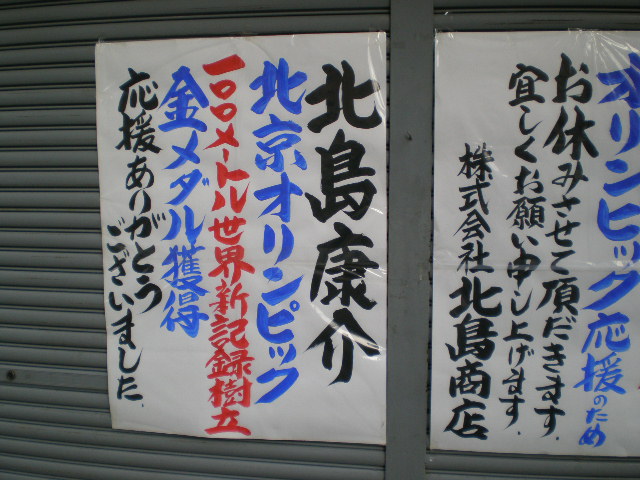 オリンピック応援のため
お休みさせて頂だきます。
宜しくお願い申し上げます。
株式会社 北島商店
北島康介
北京オリンピック
一〇〇メートル世界新記録樹立
金メダル獲得
応援ありがとう
ございました。